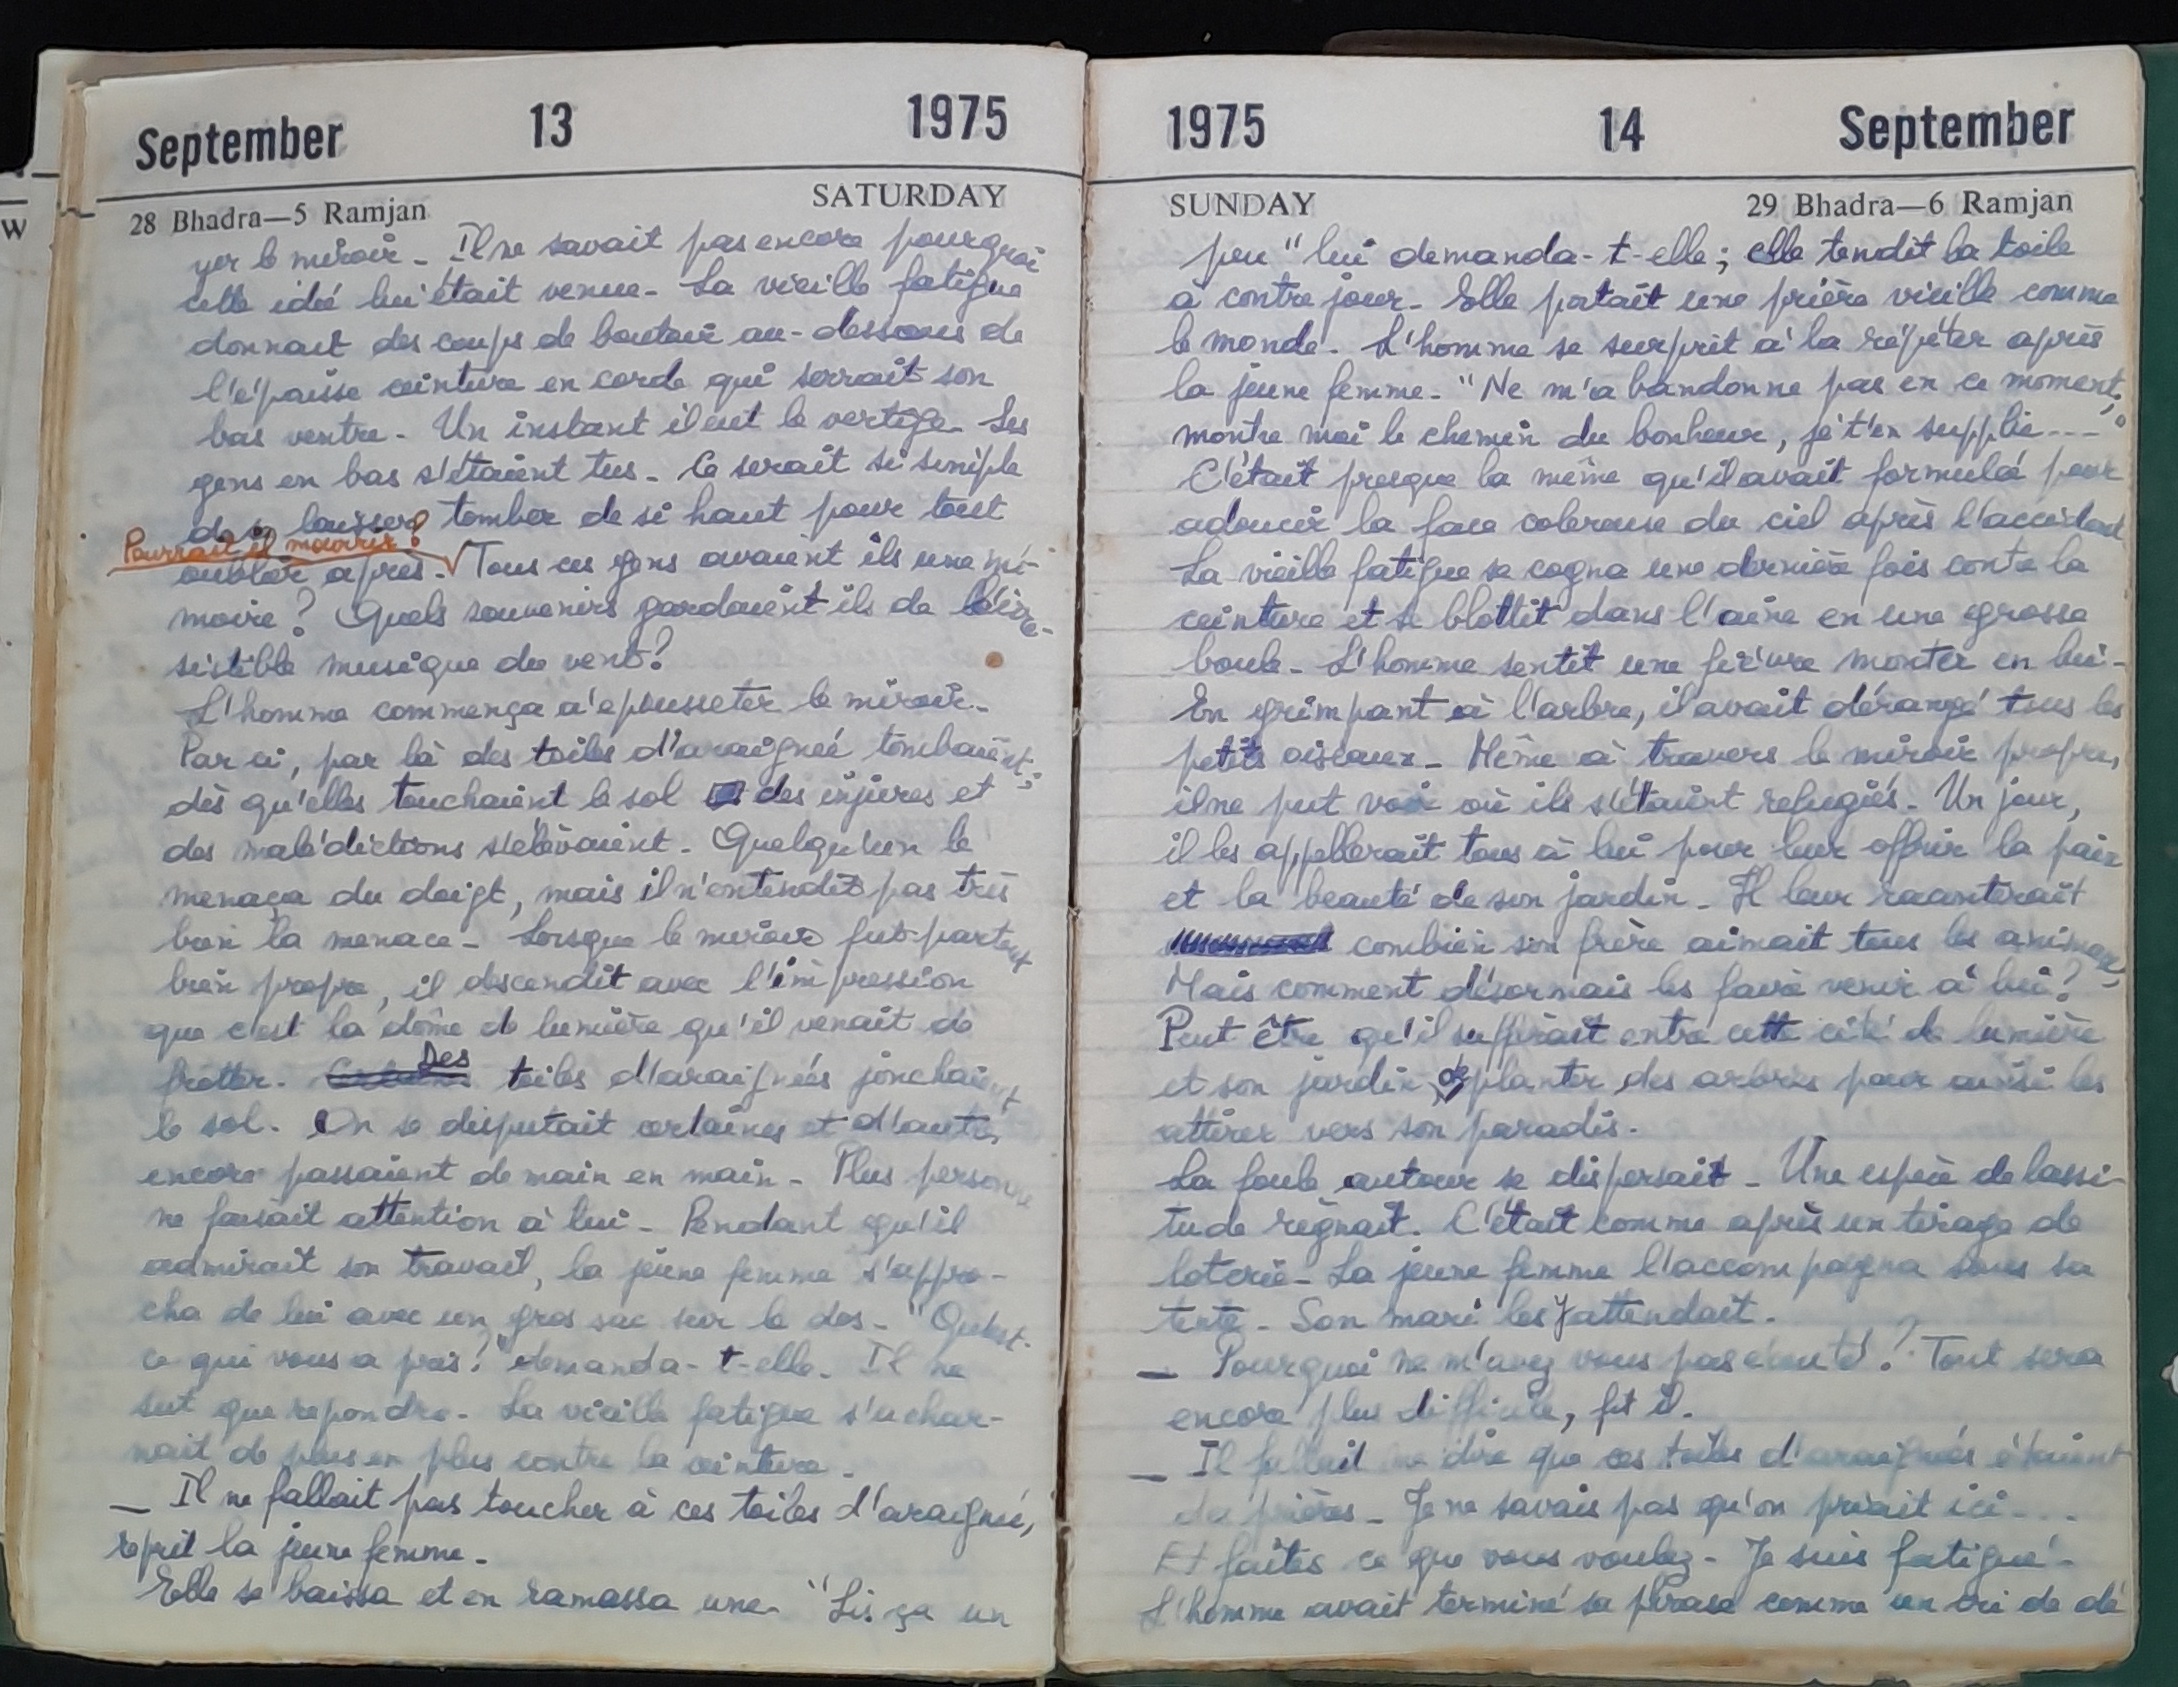 September 13 1975
28 Bhadra—5 Ramjan SATURDAY
yer le miroir. Il ne savait pas encore pourquoi
cette idée lui était venue. La vieille fatigue
donnait des coups de boutoir au-dessous de
l'épaisse ceinture en corde qui serrait son
bas ventre. Un instant il eut le vertige. Les
gens en bas s'étaient tus. Ce serait si simple
de se laisser tomber de si haut pour tout
Pourrait il mourir?
oublier après. Tous ces gens avaient ils une mé-
moire? Quels souvenirs gardaient ils de l'irré-
sistible musique du vent?
L'homme commença a'epousseter le miroir.
Par ci, par là des toiles d'araignée tombaient;
dès qu'elles touchaient le sol des injures et
des malédictions s'élevaient. Quelqu'un le
menaça du doigt, mais il n'entendit pas très
bien la menace. Lorsque le miroir fut partout
bien propre, il descendit avec l'impression
que c'est la dôme de lumière qu'il venait de
frotter. Des toiles d'araignées jonchaient
le sol. On se disputait certaines et d'autres
encore passaient de main en main. Plus personne
ne faisait attention à lui. Pendant qu'il
admirait son travail, la jeune femme s'appro-
cha de lui avec un gros sac sur le dos. "Qu'est-
ce qui vous a pris?" demanda-t-elle. Il ne
sut que repondre. La vieille fatigue s'achar-
nait de plus en plus contre la ceinture.
_ Il ne fallait pas toucher à ces toiles d'araignée,
reprit la jeune femme.
Elle se baissa et en ramassa une. "Lis ça un
1975 14 September
SUNDAY 29 Bhadra—6 Ramjan
peu" lui demanda-t-elle; elle tendit la toile
à contre jour. Elle portait une prière vieille comme
le monde. L'homme se surprit à la répéter après
la jeune femme. "Ne m'abandonne pas en ce moment,
montre moi le chemin du bonheur, je t'en supplie..."
C'était presque la même qu'il avait formulée pour
adoucir la face colereuse du ciel après l'accident.
La vieille fatigue se cogna une dernière fois contre la
ceinture et se blottit dans l'aine en une grosse
boule. L'homme sentit une fièvre monter en lui.
En grimpant à l'arbre, il avait dérangé tous les
petits oiseaux. Même à travers le miroir propre,
il ne put voir où ils s'étaient refugiés. Un jour,
il les appellerait tous à lui pour leur offrir la paix
et la beauté de son jardin. Il leur raconterait
combien son frère aimait tous les animaux.
Mais comment désormais les faire venir à lui?
Peut être qu'il suffirait entre cette cité de lumière
et son jardin de planter des arbres pour ainsi les
attirer vers son paradis.
La foule autour se dispersait. Une espèce de lassi-
tude régnait. C'était comme après un tirage de
loterie. La jeune femme l'accompagna sous sa
tente. Son mari les y attendait.
_ Pourquoi ne m'avez vous pas écouté? Tout sera
encore plus difficile, fit il.
_ Il fallait me dire que ces toiles d'araignées étaient
des prières. Je ne savais pas qu'on priait ici...
Et faites ce que vous voulez. Je suis fatigué.
L'homme avait terminé sa phrase comme un cri de dé